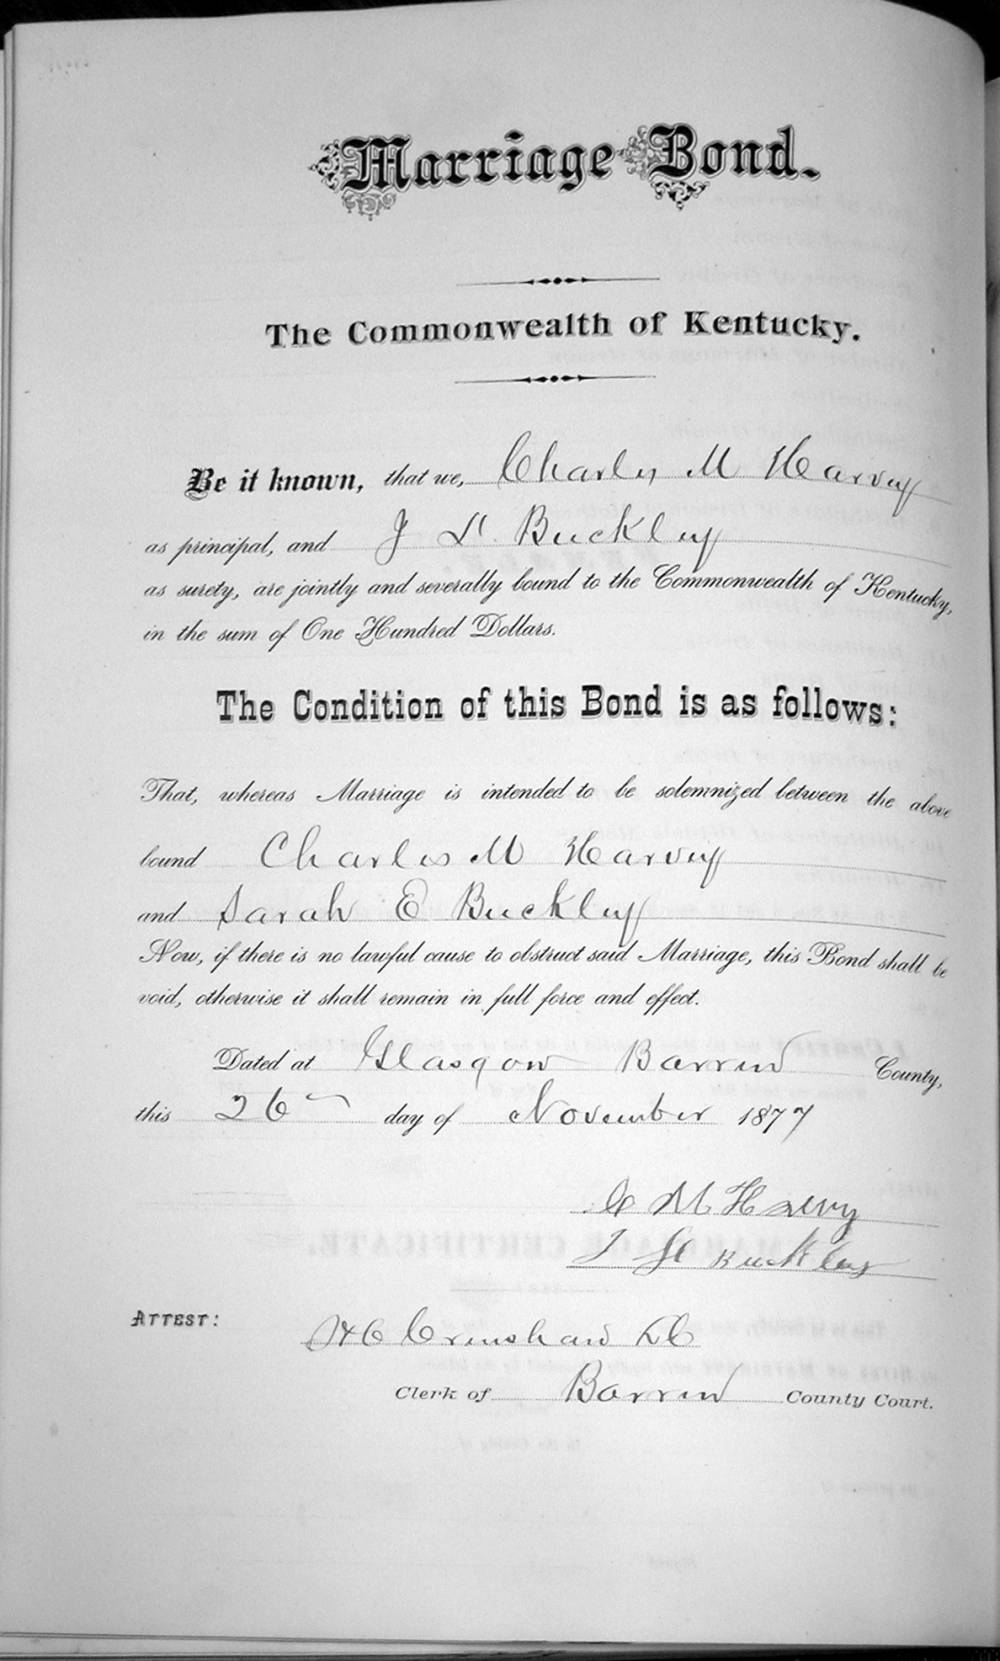 Marriage Bond.
The Commonwealth of Kentucky.
Be it known, that we, Charles M Harvey
as principal, and J Buckley
as surety, are jointly and severally bound to the Commonwealth of Kentucky,
in the sum of One Hundred Dollars.
The Condition of this Bond is as follows:
That, whereas Marriage is intended to be solemnized between the above
bound Charles M Harvey
and Sarah E Buckley
Now, if there is no lawful cause to obstruct said Marriage, this Bond shall be
void, otherwise it shall remain in full force and effect.
Dated at Glasgow Barren County,
this 26 day of November 1877
C M Harvy
Buckley
ATTEST: Crenshaw DC
Clerk of Barren County Court.